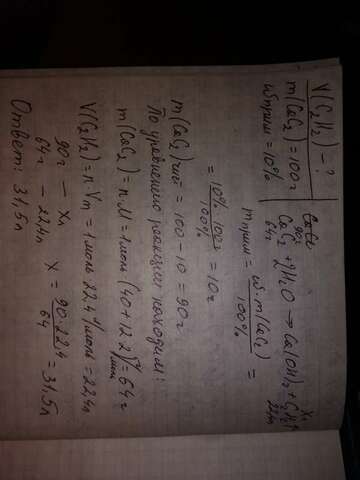 V(C₂H₂) - ?
m(CaC₂) = 100г
wприм = 10%
90г x л
CaC₂ + 2H₂O → Ca(OH)₂ + C₂H₂↑
64г 22,4л
mприм = w · m(CaC₂) / 100% =
= 10% · 100г / 100% = 10г
m(CaC₂)чист = 100 - 10 = 90г
По уравнению реакции находим:
m(CaC₂) = n · M = 1моль (40 + 12·2) г/моль = 64г
V(C₂H₂) = n · Vm = 1моль 22,4 л/моль = 22,4л
90г — xл
64г — 22,4л x = 90 · 22,4 / 64 = 31,5л
Ответ: 31,5л